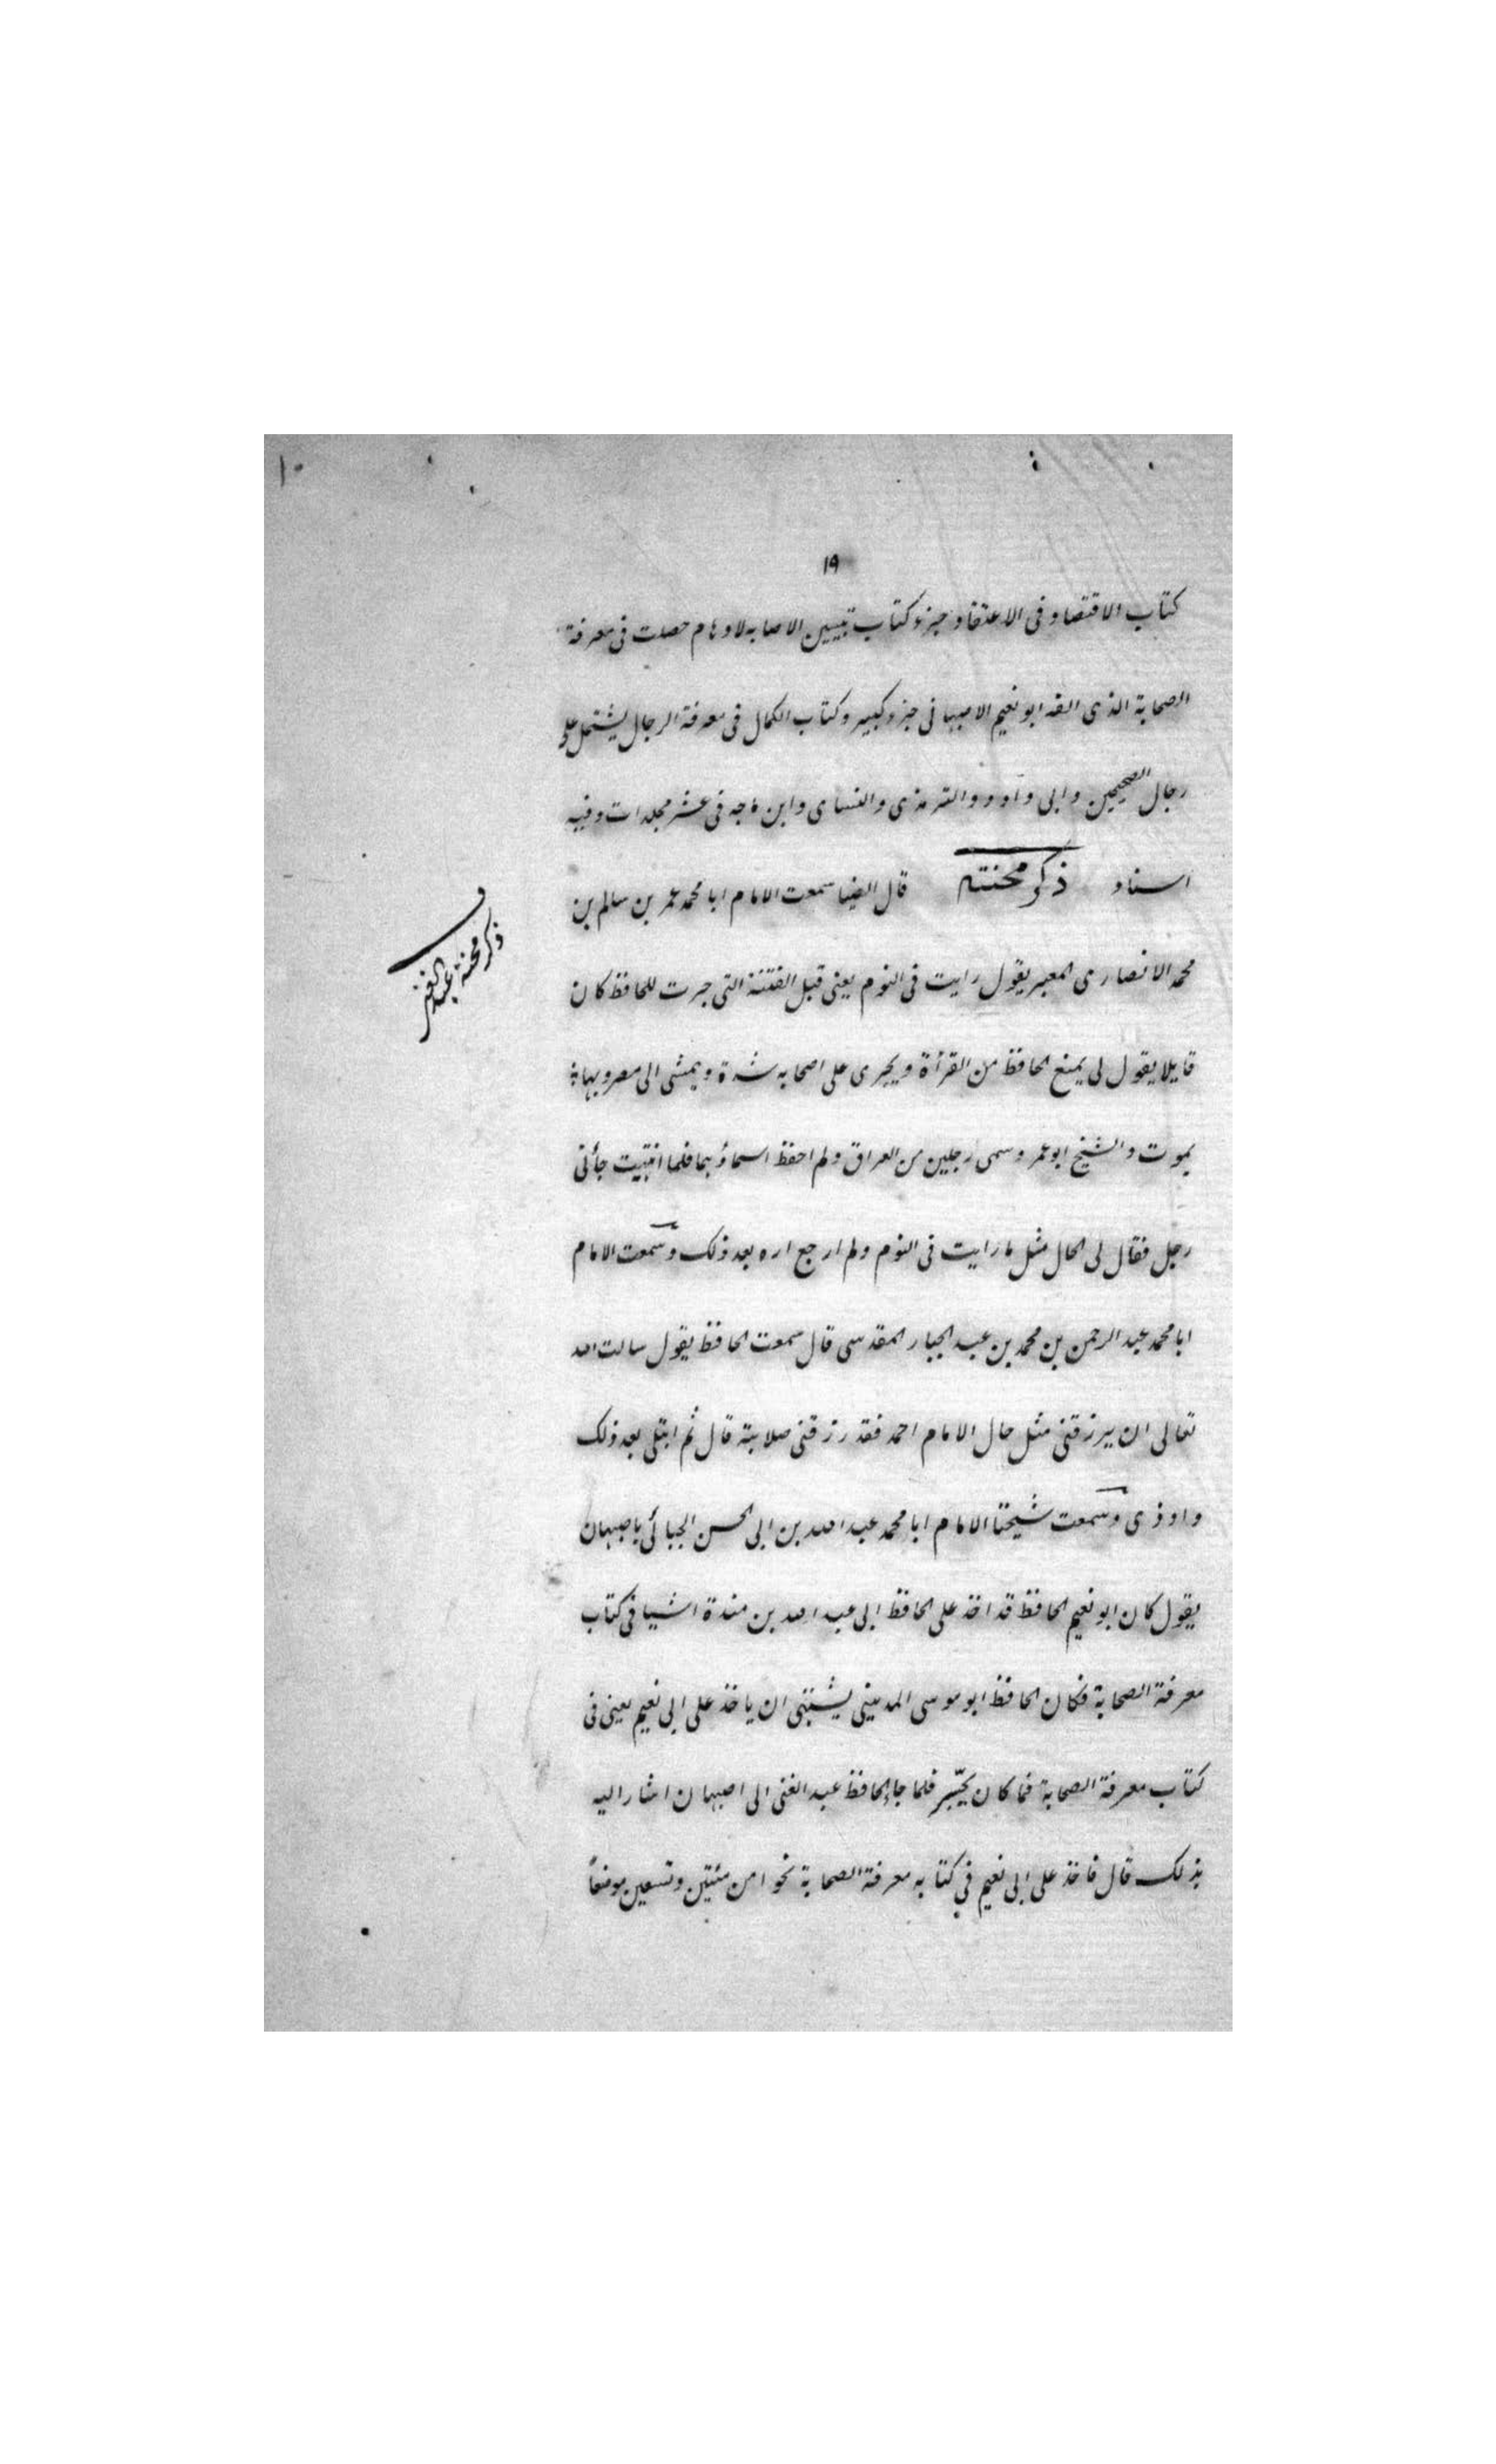 ١٠
١٩
كتاب الاقتصاد فى الاعتقاد جزء كتاب تبيين الاصابه لاوهام حصلت فى معرفة
الصحابة الذى الفه ابو نعيم الاصبهانى جزء كبير وكتاب الكمال فى معرفة الرجال يشتمل على
رجال الصحيحين وابى داود والترمذى والنساى وابن ماجه فى عشر مجلدات وفيه
اسناد ذكر محنته قال الضيا سمعت الامام ابا محمد عمر بن سالم بن
ذكر محنة عبد الغنى
محمد الانصارى المعبر يقول رايت فى النوم يعنى قبل الفتنة التى جرت للحافظ كان
قايلا يقول لى يمنع الحافظ من القرأة ويجرى على اصحابه شدة ويمشى الى مصر وبها
يموت والشيخ ابو عمر وسمى رجلين من العراق ولم احفظ اسماؤهما فلما انتبهت جأنى
رجل فقال لى الحال مثل ما رايت فى النوم ولم ارجع اره بعد ذلك وسمعت الامام
ابا محمد عبد الرحمن بن محمد بن عبد الجبار المقدسى قال سمعت الحافظ يقول سالت الله
تعالى ان يرزقنى مثل حال الامام احمد فقد رزقنى صلابته قال ثم ابتلى بعد ذلك
واوذى وسمعت شيخنا الامام ابا محمد عبد الله بن ابى الحسن الجبائى باصبهان
يقول كان ابو نعيم الحافظ قد اخذ على الحافظ ابى عبد الله بن مندة اشيا فى كتاب
معرفة الصحابة فكان الحافظ ابو موسى المدينى يشتهى ان ياخذ على ابى نعيم يعنى فى
كتاب معرفة الصحابة فما كان يجسر فلما جاء الحافظ عبد الغنى الى اصبهان اشار اليه
بذلك قال فاخذ على ابى نعيم فى كتابه معرفة الصحابة نحوا من مئتين وتسعين موضعاً